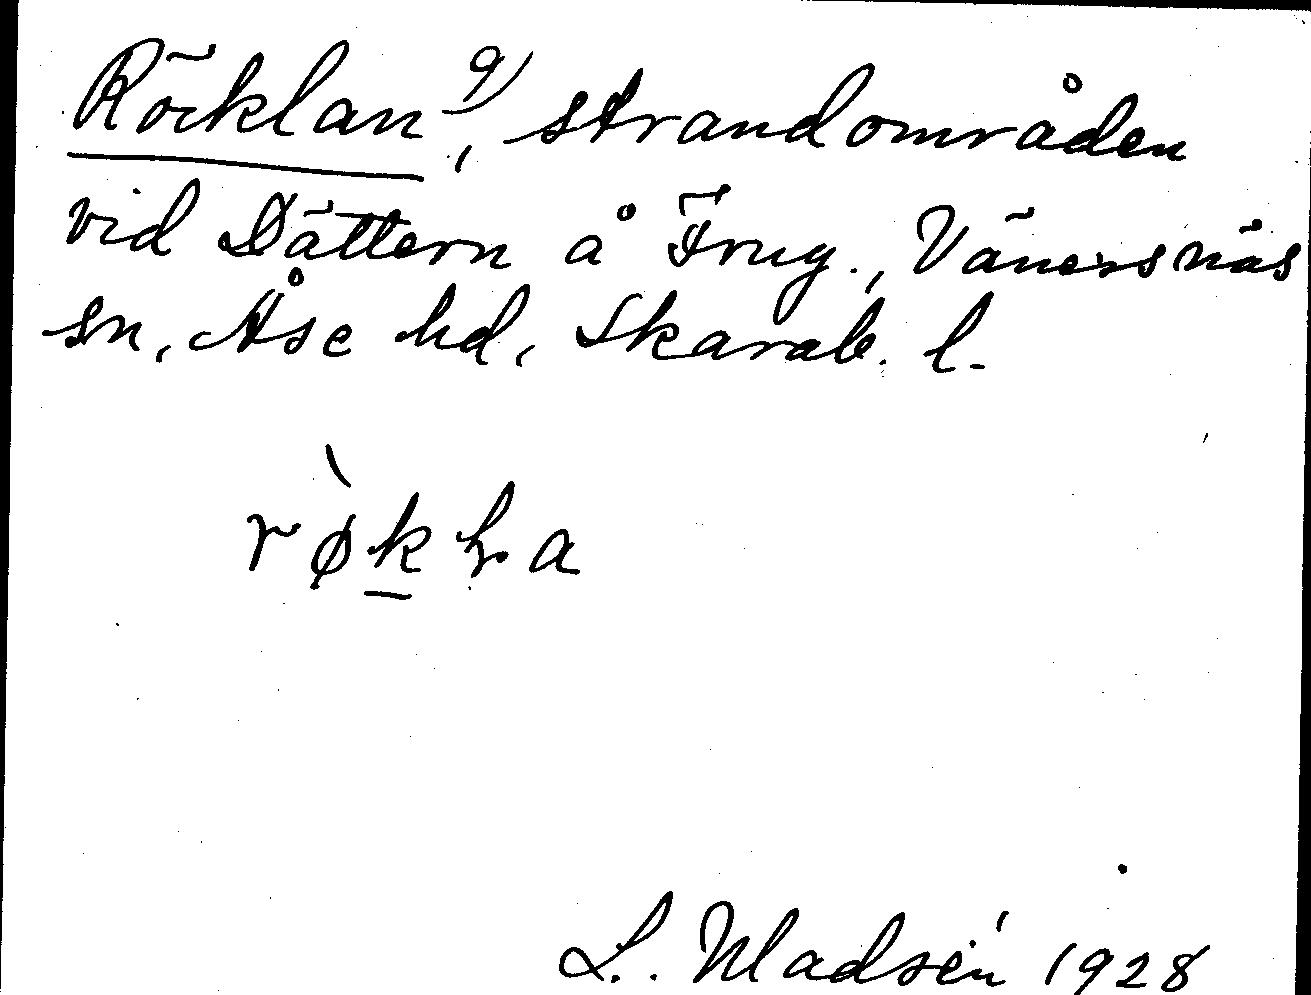 Röcklan 9), strandområden
vid Dättern å Frug., Vänersnäs
sn, Åse hd, Skarab. l.
L. Madsén 1928